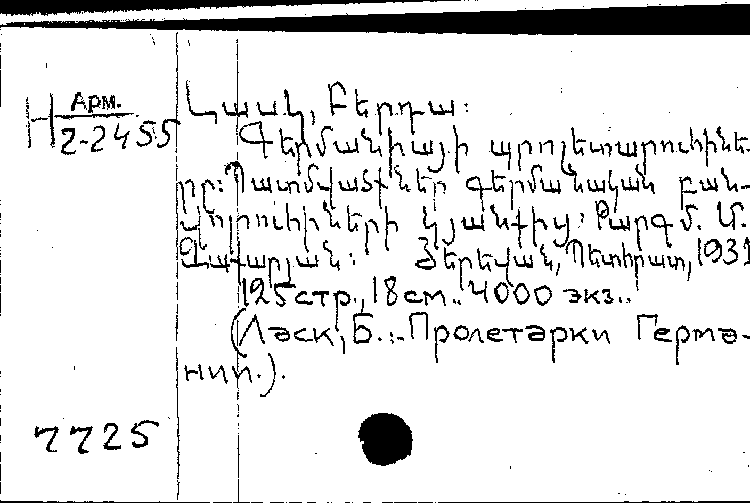 Арм.
Н 2-2455
Լասկ, Բերտա:
Գերմանիայի պրոլետարուհինե-
րը: Պատմվածքներ գերմանական բան-
վորուհիների կյանքից: Թարգմ. Մ.
Գավարյան: Յերեվան, Պետհրատ, 1931
125 стр., 18 см.. 4000 экз..
(Ласк, Б..:- Пролетарки Герма-
нии.).
7725